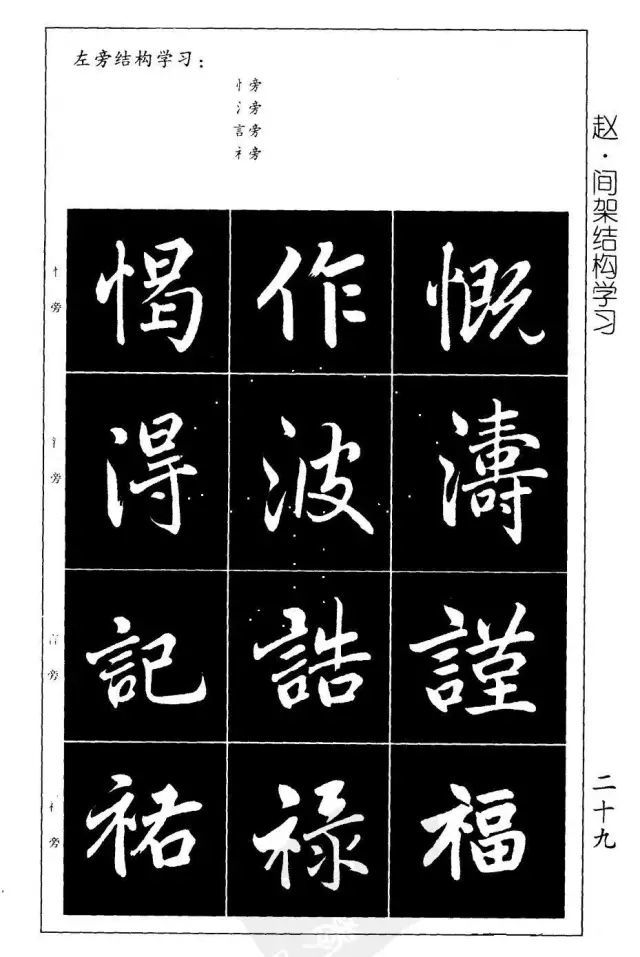 左旁结构学习：
忄旁
氵旁
言旁
礻旁
赵·间架结构学习
忄旁
愒 作 慨
氵旁
淂 波 濤
言旁
記 誥 謹
礻旁
祐 禄 福
二十九